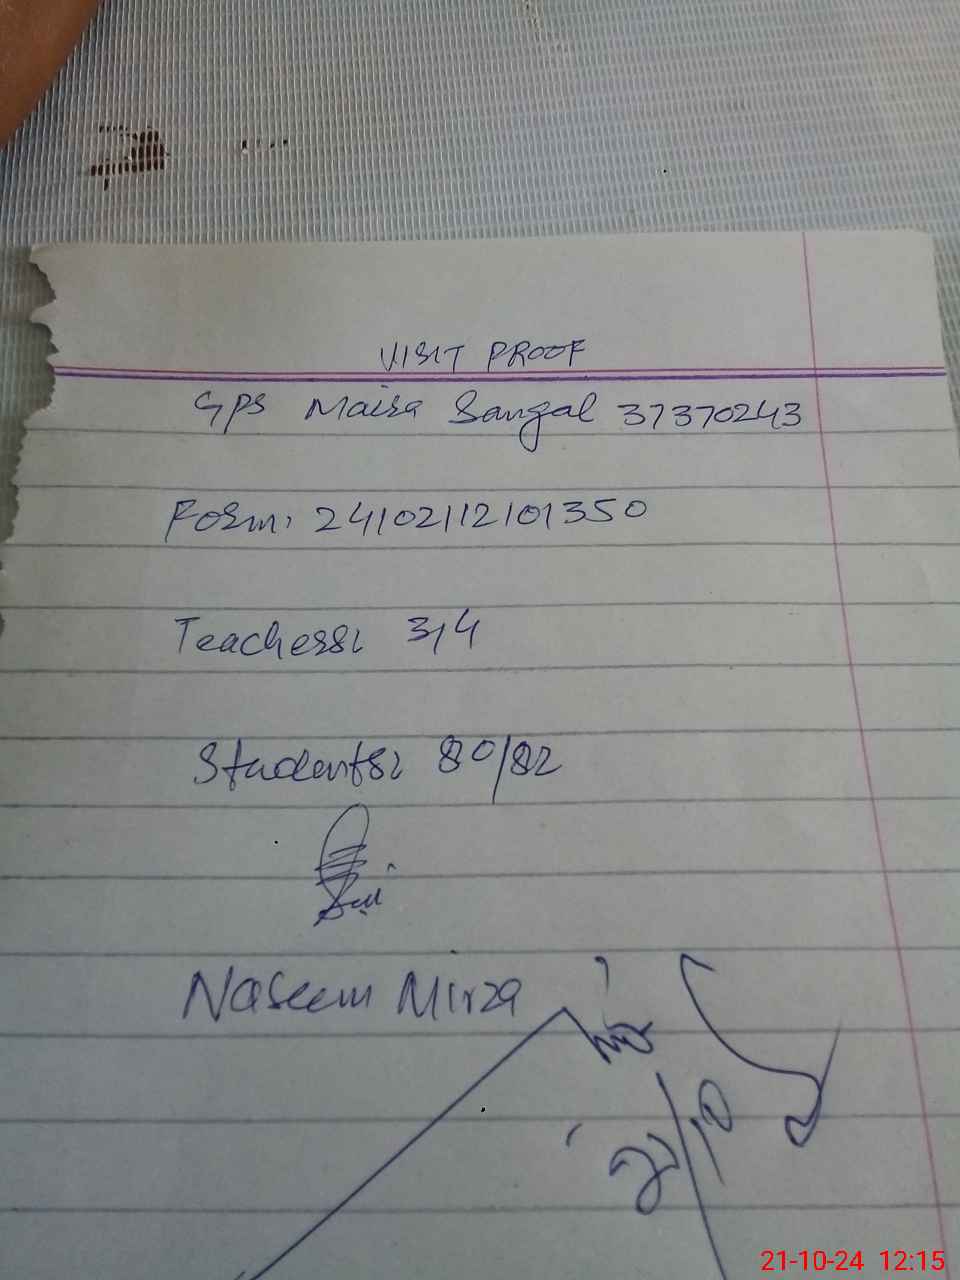 VISIT PROOF
GPS Maira Sangal 37370243
Form: 24102112101350
Teachers: 3/4
Students: 80/82
Naseem Mirza
21/10
21-10-24 12:15